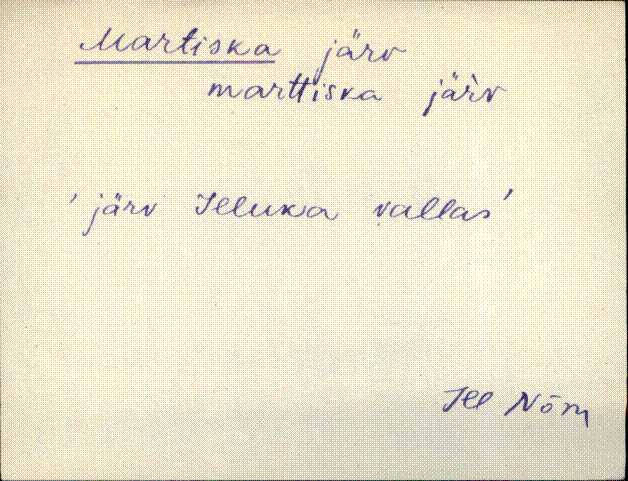 Martiska järv
marttiska järv
'järv Illuka vallas'
Ill Nõm